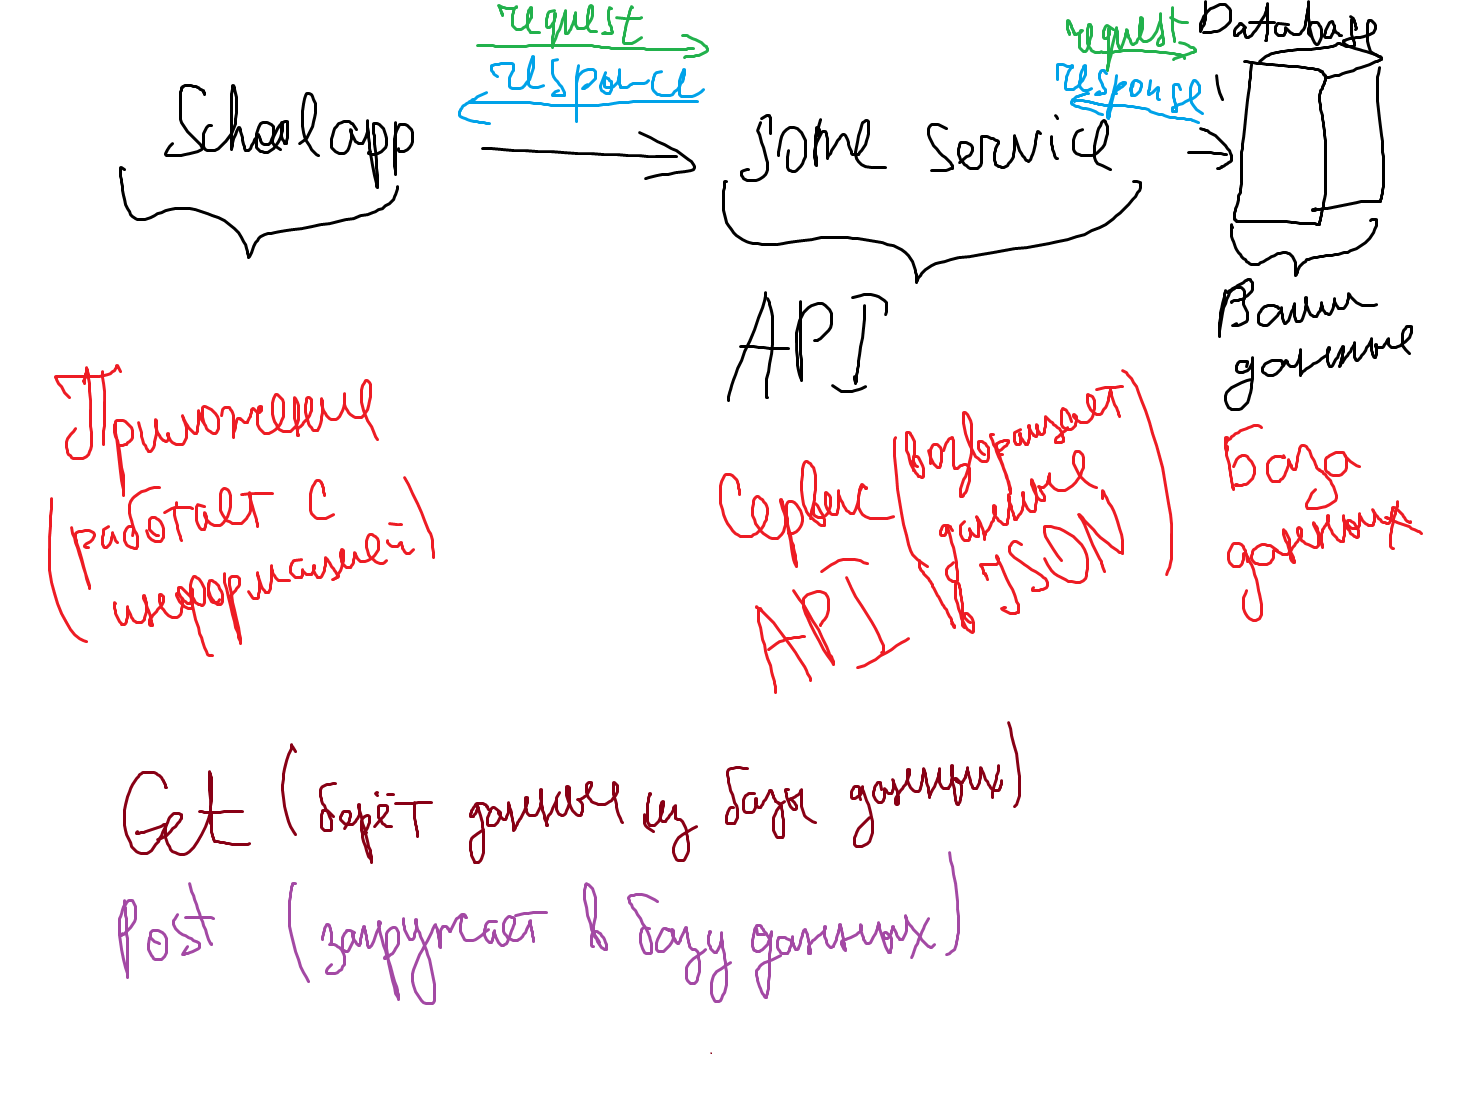 request
responce
School app
some service
request
response
Database
API
Ваши
данные
Приложение
(работает с
информацией)
Сервис
API
(возвращает
данные
в JSON)
База
данных
Get (берёт данные из базы данных)
Post (загружает в базу данных)